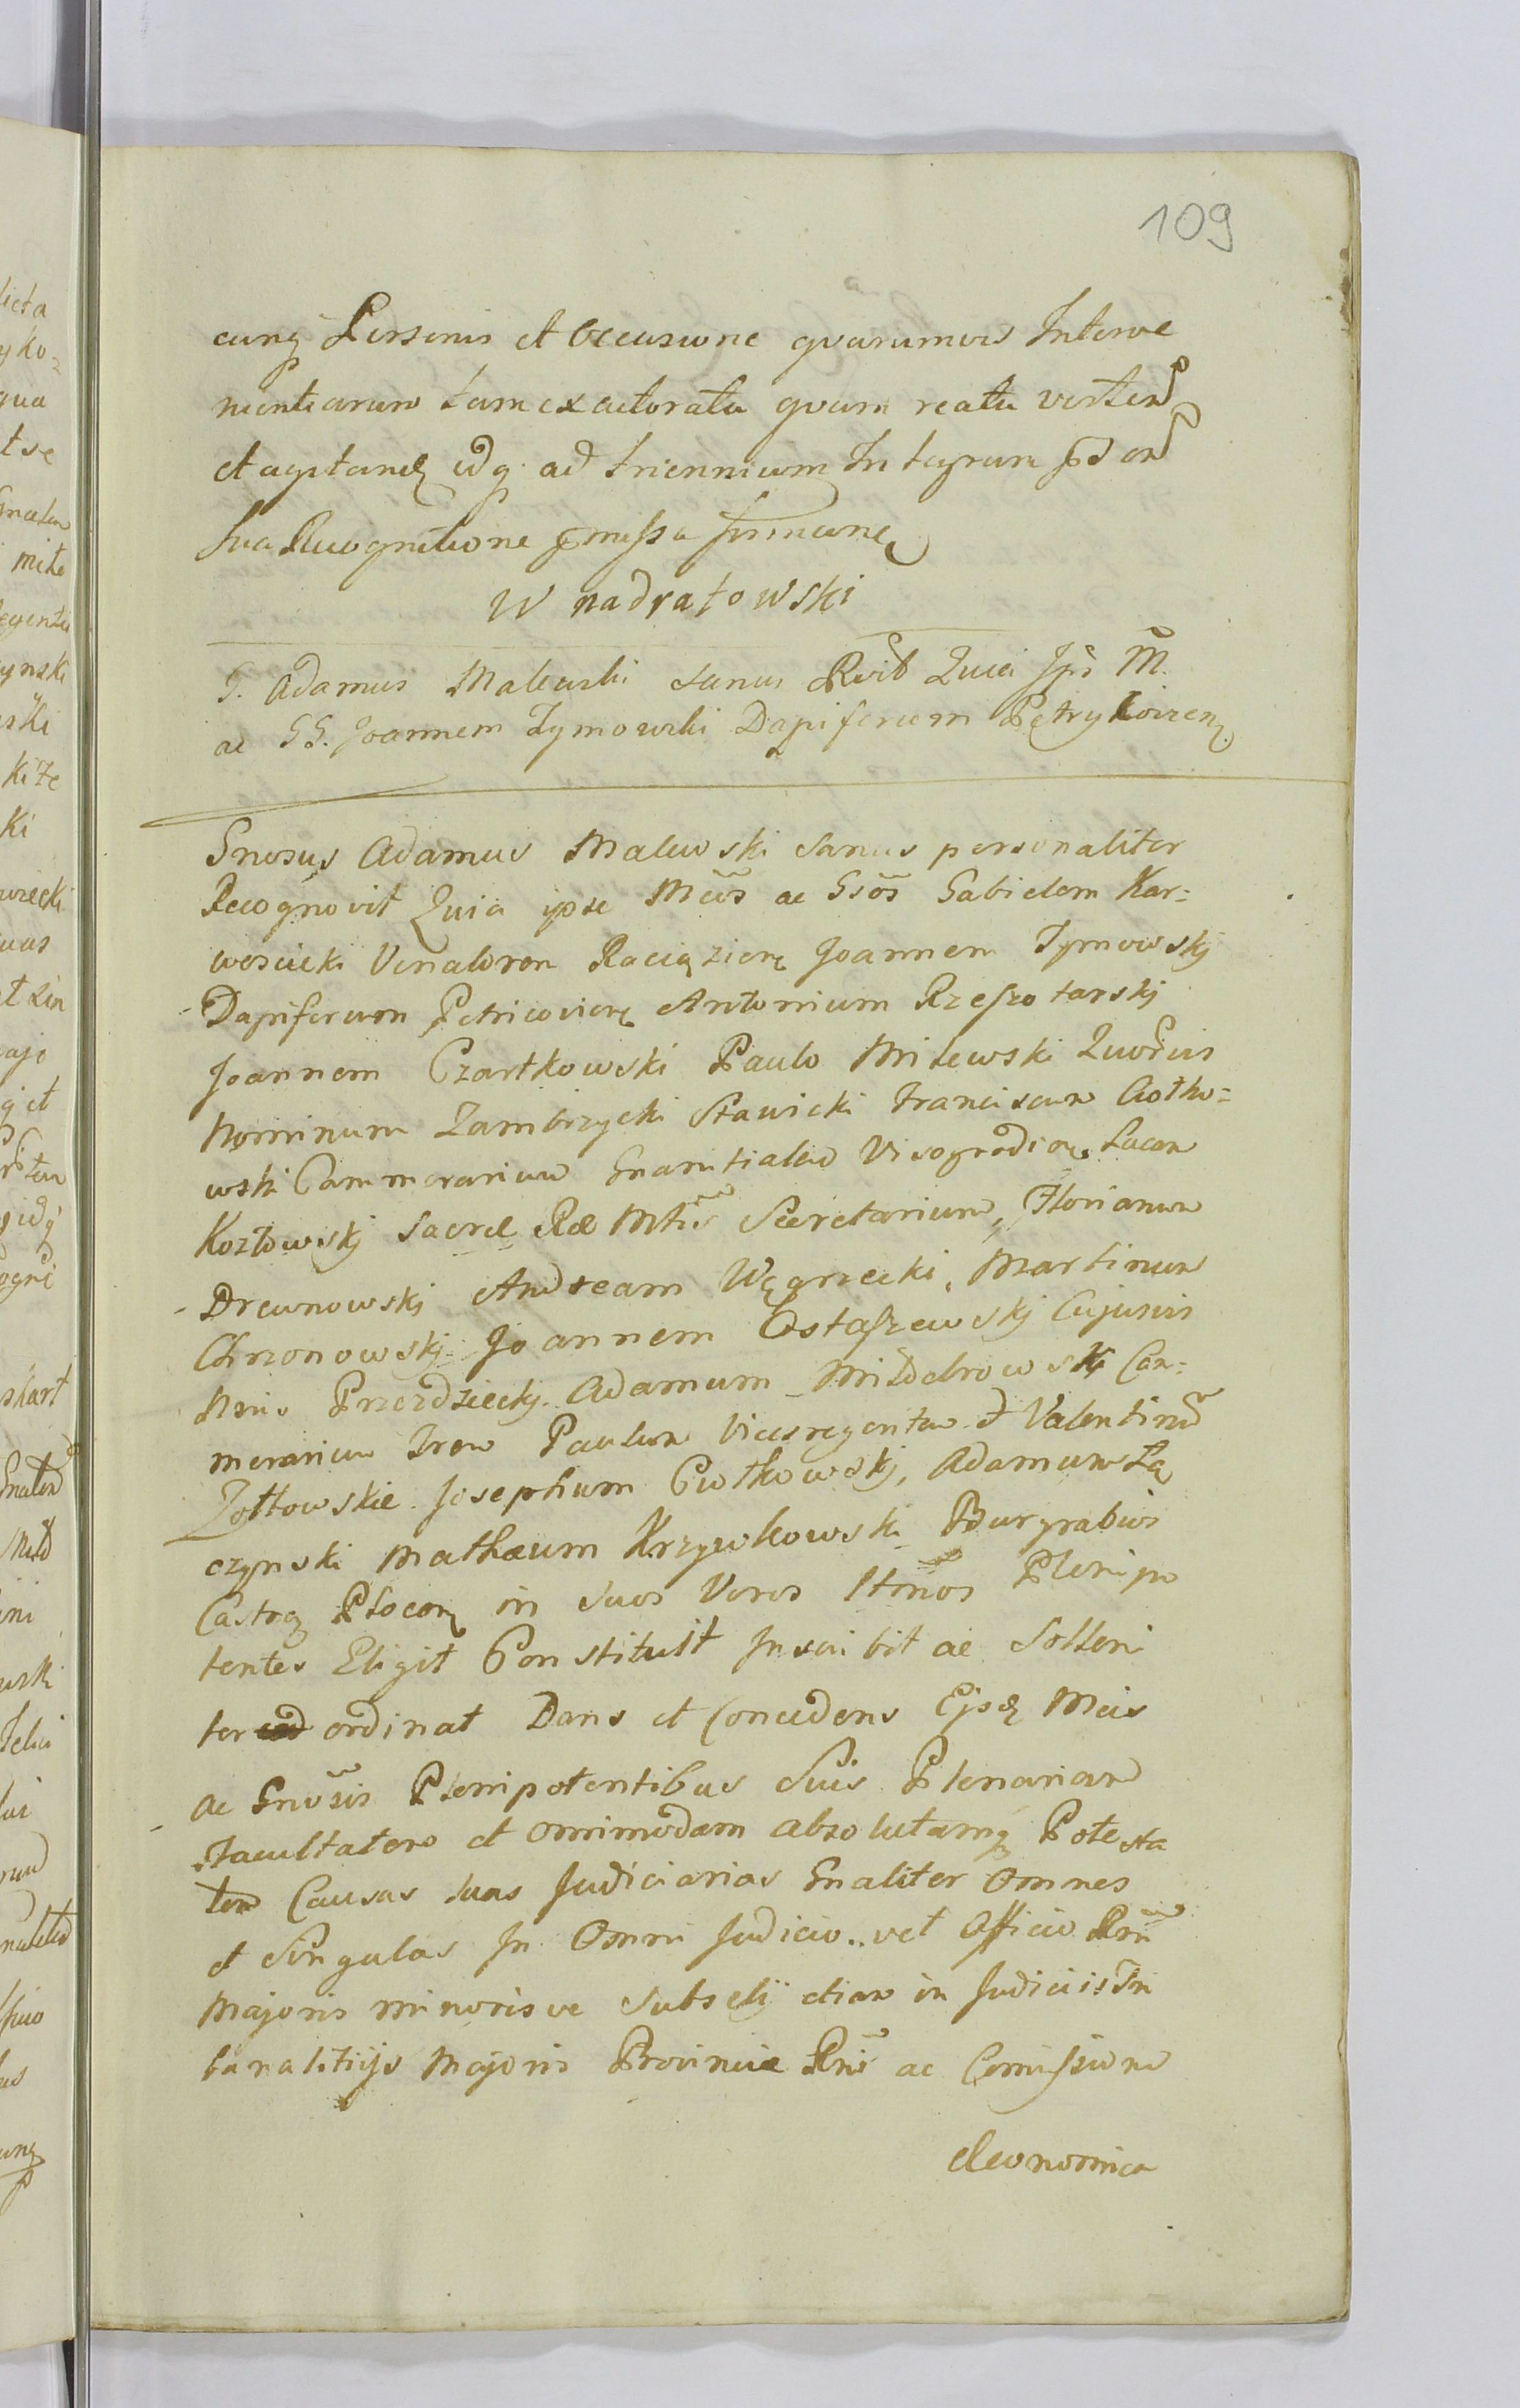 109
cunq Personis et Occasione qvarumvis Interve
nientiarum tam ex actoratu qvam reatu verten
et agitand idq ad triennium Integrum
Sua Recognitione pmissa
W nadratowski
G. Adamus Malewski sanus Recit Quia Ips M.
ac GG. Joannem Tymowski Dapiferum Petrykovien
Gnosus Adamus Malewski Sanus personaliter
Recognovit Quia ipse Mcos ac Gsos Gabielem Kar=
wosicki Venatorem Raciązien Joannem Tymowskj
Dapiferum Petricovien Antonium Rzeszotarskj
Joannem Czartkowski Paulo Milewski Quorvis
Nominum Zambrzycki Sławicki Franciscum Ciołko=
wski Cammerarium Granitialem Visogrodien Lucam
Kozłowskj Sacræ Ræ Mtis Secretarium, Florianum
Drewnowskj Andream Węgrzecki, Martinum
Chrzonowskj Joannem Ostaszewskj Cujusvis
Nnis Przezdzieckj. Adamum Miłdobrowski Cam=
merarium Paulum Vicesregentem et Valentinu
Zołtowskie Josephum Ciołkowskj, Adamum Łą
czynski Mathæum Krzywkowski Burgrabios
Castren Plocen in Suos Veros Plenipo
tentes Eligit Constituit Inscribit ac Solleni
ter ordinat Dans et Concedens Ejsd Mcis
ac Gnosis Plenipotentibus Suis Plenariam
Facultatem et Omnimodam absolutamq Potesta
tem Causas suas Judiciarias Gnaliter Omnes
et Singulas In Omni Judicio vel Officio Rni
Majoris minorisve Subselij etiam in Judiciis Tri
bunalitijs Majoris Provinciæ Rni ac Comissione
Œconomica